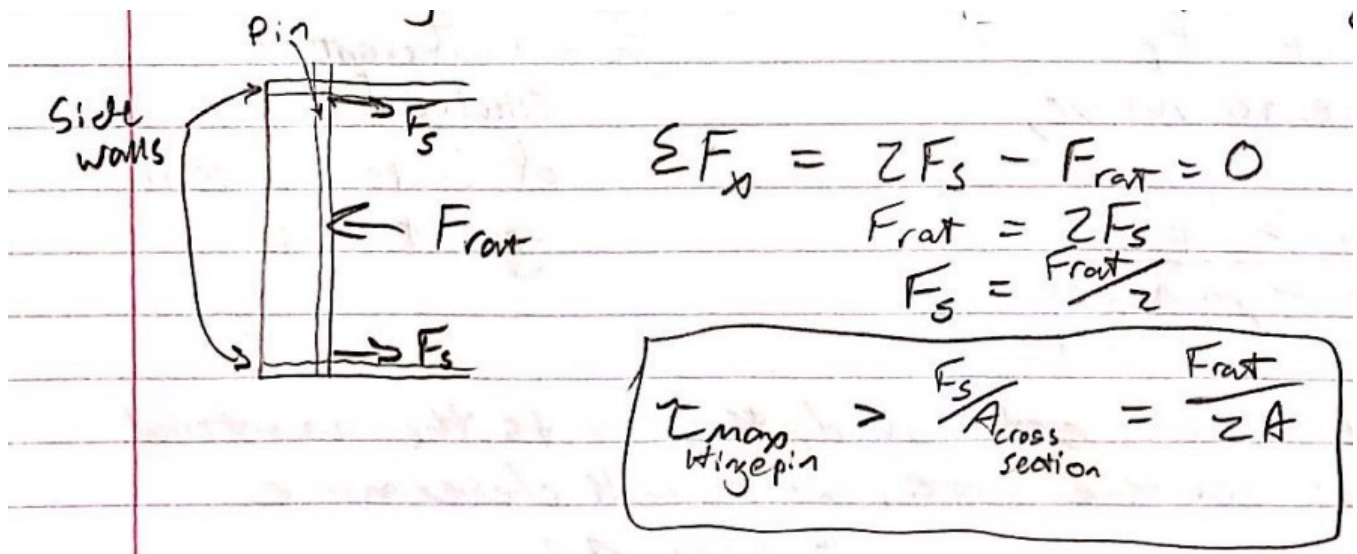 Pin
Side
walls
F_s
F_rat
F_s
ΣF_x = 2F_s - F_rat = 0
F_rat = 2F_s
F_s = F_rat/2
τ_max Hingepin > F_s/A_cross section = F_rat/2A